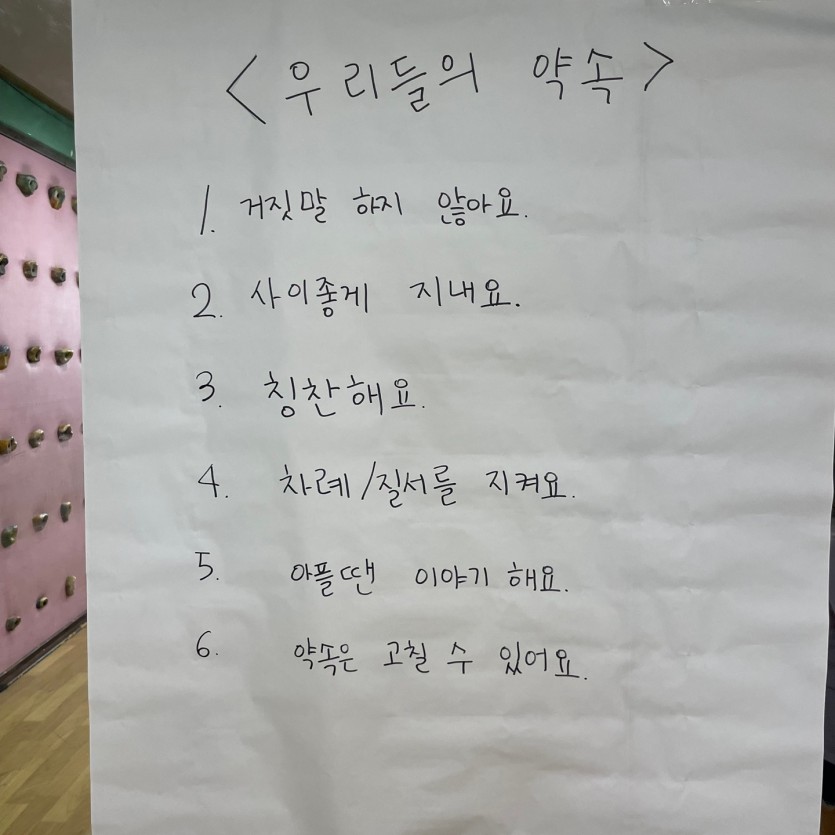 <우리들의 약속>
1. 거짓말 하지 않아요.
2. 사이좋게 지내요.
3. 칭찬해요.
4. 차례/질서를 지켜요.
5. 아플땐 이야기 해요.
6. 약속은 고칠 수 있어요.